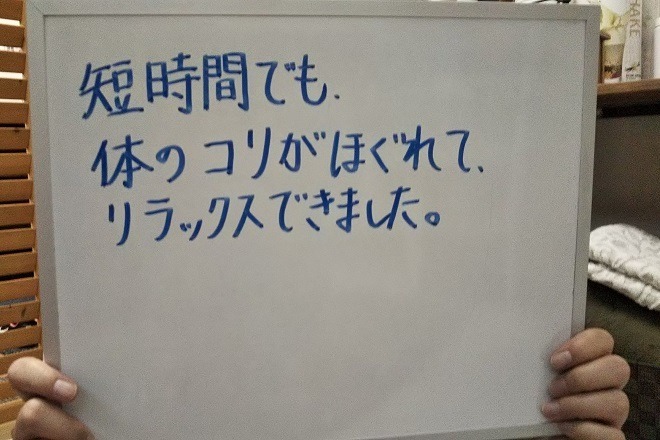 短時間でも、
体のコリがほぐれて、
リラックスできました。
HAKE